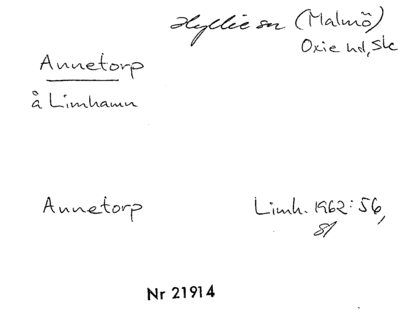 Hyllie sn (Malmö)
Oxie hd, Sk
Annetorp
å Limhamn
Annetorp
Limh. 1962: 56,
81
Nr 21914